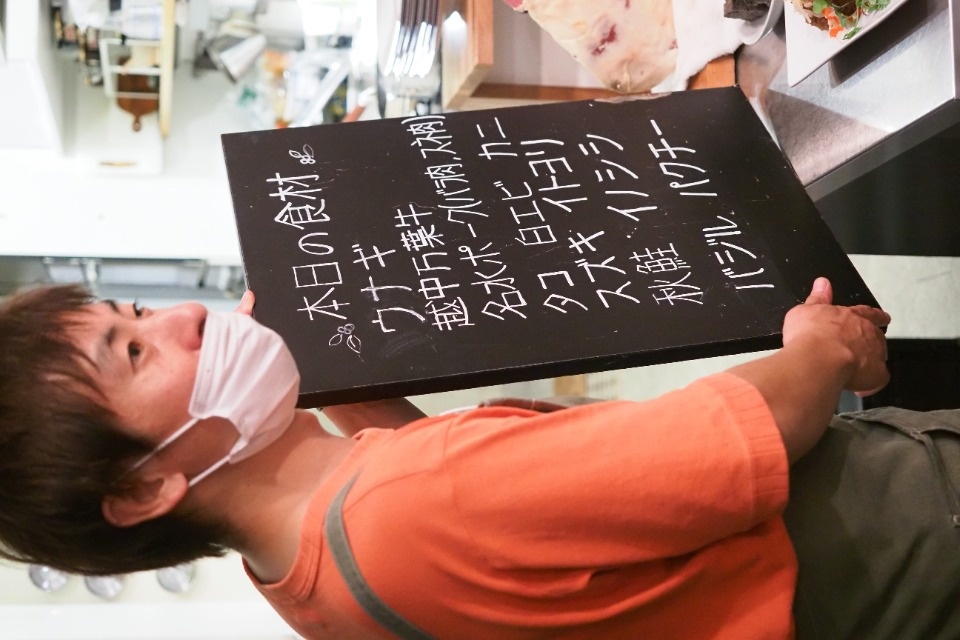 本日の食材
ウナギ
越中万葉牛
名水ポーク(バラ肉,スネ肉)
タコ 白エビ カニ
スズキ イトヨリ
秋鮭 イノシシ
バジル. パクチー